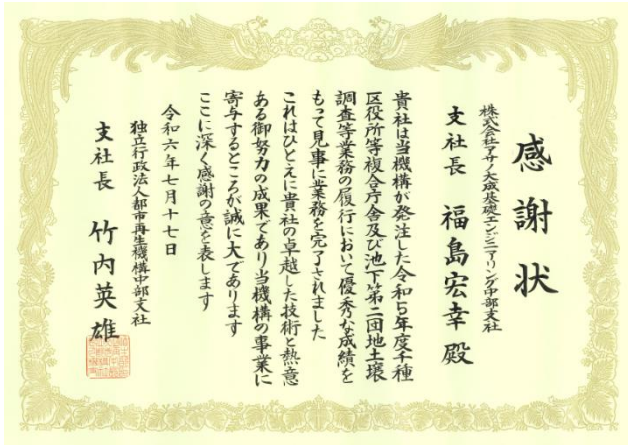 感謝状
株式会社アサノ大成基礎エンジニアリング中部支社
支社長　福島宏幸　殿
貴社は当機構が発注した令和5年度千種
区役所等複合庁舎及び池下第二団地土壌
調査等業務の履行において優秀な成績を
もって見事に業務を完了されました
これはひとえに貴社の卓越した技術と熱意
ある御努力の成果であり当機構の事業に
寄与するところが誠に大であります
ここに深く感謝の意を表します
令和六年七月十七日
独立行政法人都市再生機構中部支社
支社長　竹内英雄